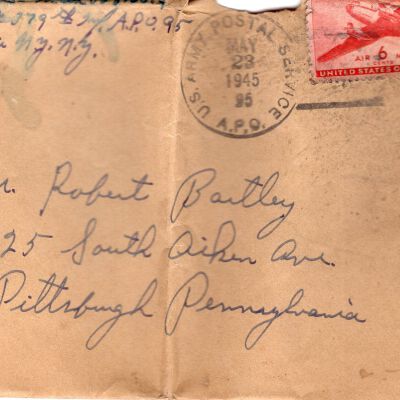 379th Inf, A.P.O. 95
N.Y. N.Y.
U.S. ARMY POSTAL SERVICE
MAY
23
1945
95
A.P.O.
AIR
6
CENTS
UNITED STATES O
Robert Bartley
25 South Aiken Ave.
Pittsburgh Pennsylvania